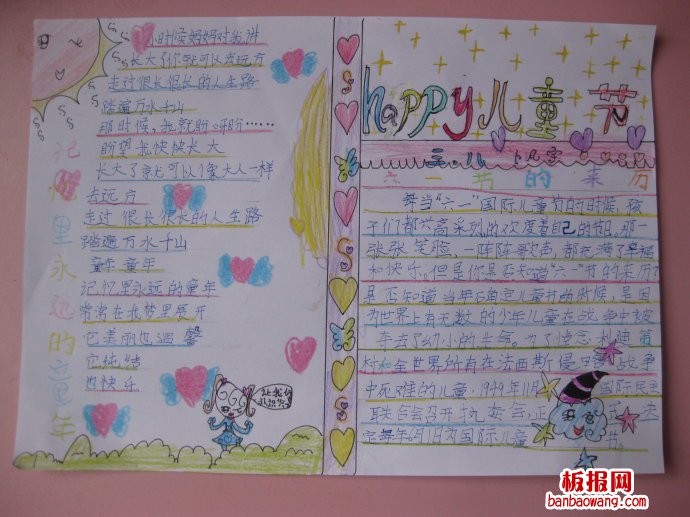 小时候妈妈对我讲
长大了你就可以去远方
走过很长很长的人生路
踏遍万水千山
那时候,我就盼呀盼……
盼望我快快长大
长大了就可以像大人一样
去远方
走过很长很长的人生路
踏遍万水千山
童年童年
记忆里永远的童年
常常在我梦里展开
它美丽也温馨
它纯洁
也快乐
记忆里永远的童年
happy儿童节
六一节的来历
每当“六一”国际儿童节的时候,孩
子们都兴高采烈的欢度着自己的节日,那一
张张笑脸,一阵阵歌声,都充满了幸福
和快乐,但是你是否知道“六一”节的来历?
是否知道当年
为世界上有无数的少年儿童在战争中被
夺去了幼小的生命。为了悼念
和全世界所有在法西斯侵略战争
中死难的儿童,1949年11月 国际民主
联合会召开执委会,正
定每年6月1日为国际儿童节。
板报网
banbaowang.com